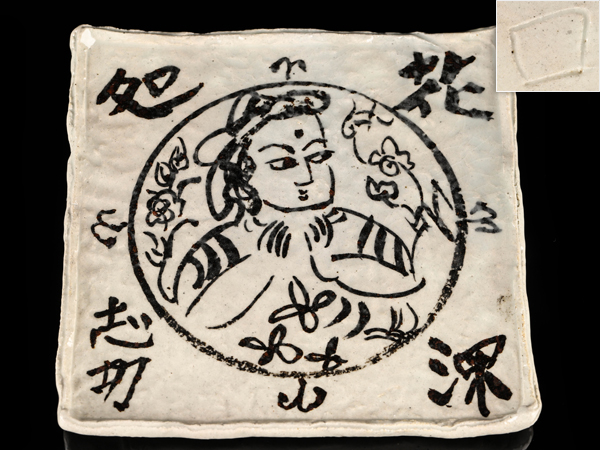 花
深
処
志功